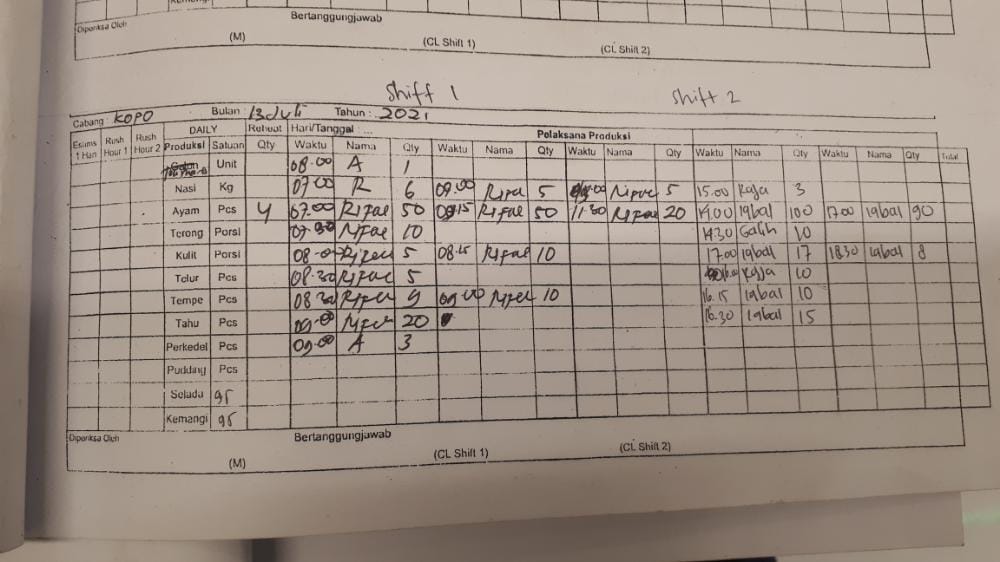 Diperiksa Oleh Bertanggungjawab
(M) (CL Shift 1) (CL Shift 2)
Shift 1 Shift 2
Cabang : KOPO Bulan : 13 Juli Tahun : 2021
Esims 1 Hari Rush Hour 1 Rush Hour 2 DAILY Reheat Hari/Tanggal : ... Pelaksana Produksi
Produksi Satuan Qty Waktu Nama Qty Waktu Nama Qty Waktu Nama Qty Waktu Nama Qty Waktu Nama Qty Total
Unit 08.00 A 1
Nasi Kg 07.00 R 6 09.00 Rifal 5 Rifal 5 15.00 Raja 3
Ayam Pcs 4 07.00 Rifal 50 08.15 Rifal 50 11.30 Rifal 20 14.00 Iqbal 100 17.00 Iqbal 90
Terong Porsi 07.30 Rifal 10 14.30 Galih 10
Kulit Porsi 08.00 Rifal 5 08.15 Rifal 10 17.00 Iqbal 17 18.30 Iqbal 8
Telur Pcs 08.30 Rifal 5 16.00 Raja 10
Tempe Pcs 08.30 Rifal 9 09.00 Rifal 10 16.15 Iqbal 10
Tahu Pcs 09.00 Rifal 20 16.30 Iqbal 15
Perkedel Pcs 09.00 A 3
Pudding Pcs
Selada gr
Kemangi gr
Diperiksa Oleh Bertanggungjawab
(M) (CL Shift 1) (CL Shift 2)